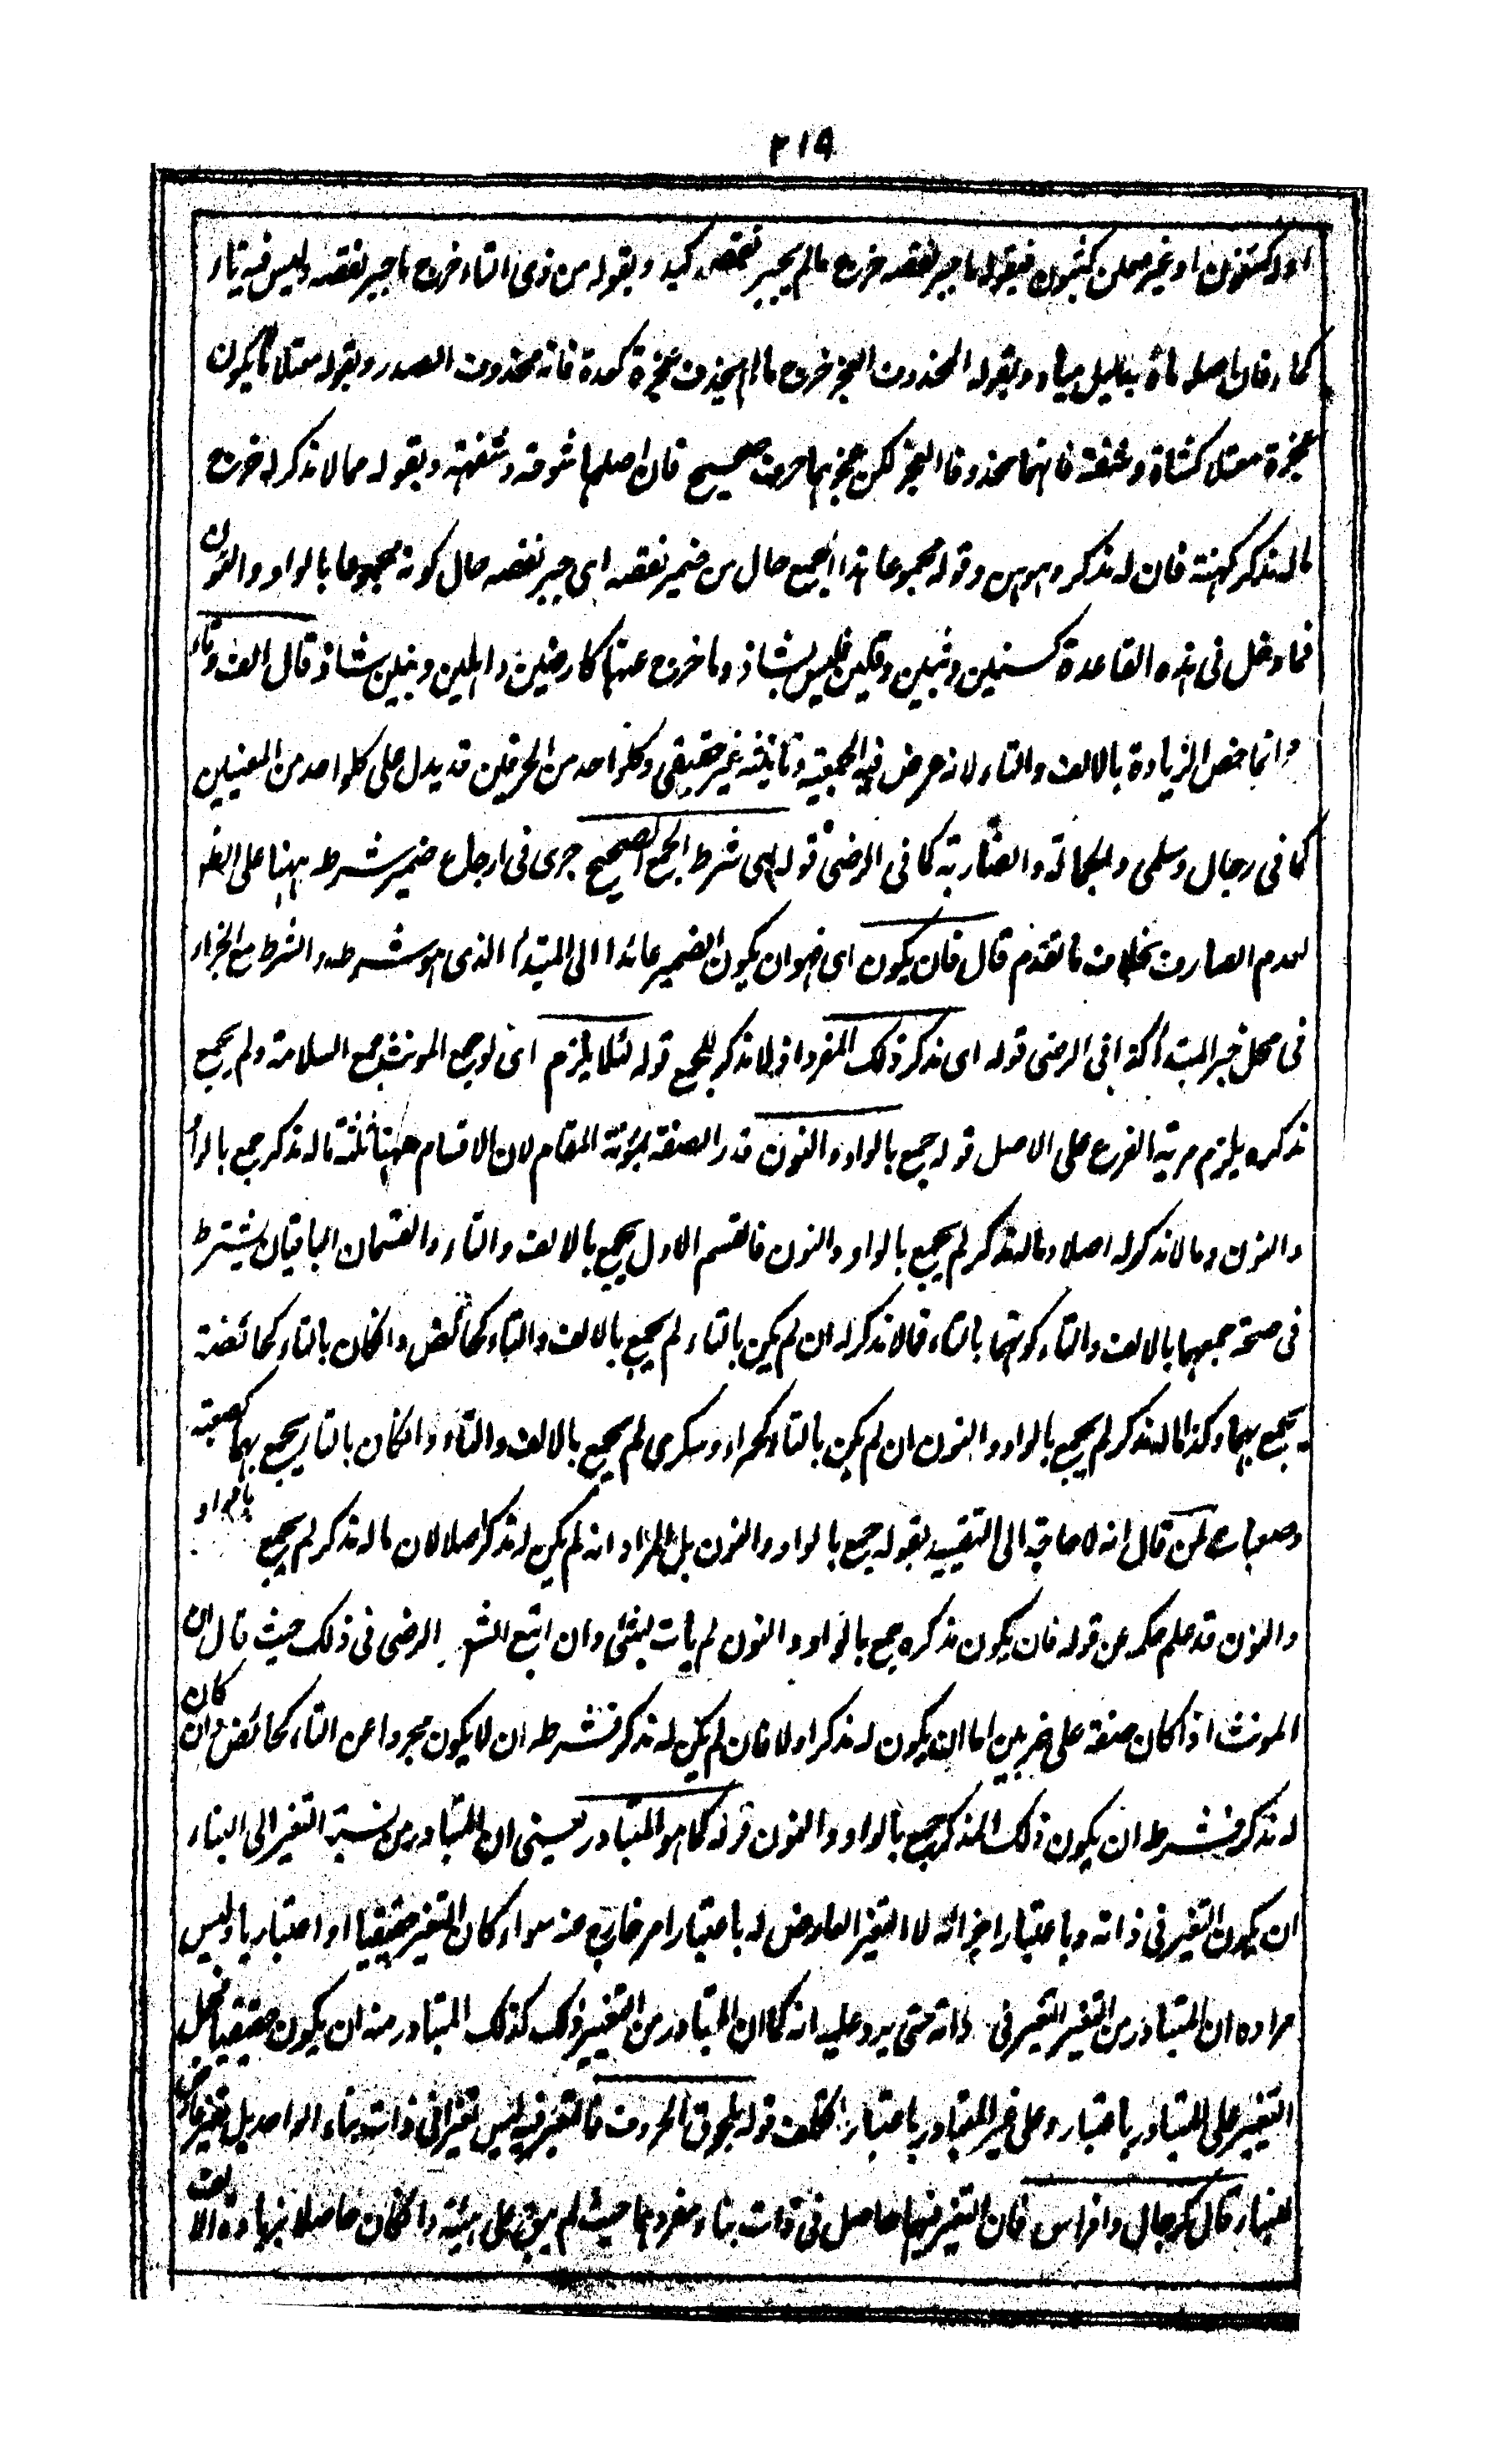 ٢١٩
او لا كسنون او غير معلن كثبون فبقوله ما جبر نقصه خرج ما لم يجبر نقصه كيد وبقوله من ذى التاء خرج ما جبر نقصه وليس فيه تاء
كماء فان اصله ماه بدليل مياه وبقوله المحذوف العجز خرج ما لم يحذف عجزه كعدة فانه محذوف الصدر وبقوله معتلا ما يكون
عجزه معتلا كشاة وشفة فانهما محذوفا العجز لكن عجزهما حرف صحيح فان اصلهما شوهة وشفهة وبقوله مما لا مذكر له خرج
ما له مذكر كهنة فان له مذكر وهو هن وقوله مجموعا هذا الجمع حال من ضمير نقصه اى جبر نقصه حال كونه مجموعا بالواو والنون
فما دخل فى هذه القاعدة كسنين وثبين وقلين فليس بشاذ وما خرج عنها كارضين واهلين وبنين شاذ قال الف وتاء
وانما خص الزيادة بالالف والتاء لانه عرض فيه الجمعية وتانيثه غير حقيقى وكلواحد من الحرفين قد يدل على كلواحد من المعنيين
كما فى رجال وسلمى والجمالة والضاربة كما فى الرضى قوله اى شرط الجمع الصحيح جرى فى ارجاع ضمير شرطه ههنا على الظ
لعدم الصارف بخلاف ما تقدم قال فان يكون اى فهو ان يكون الضمير عائدا الى المبتدأ الذى هو شرطه والشرط مع الجزاء
فى محل خبر المبتدأ كذا فى الرضى قوله اى مذكر ذلك المفرد اذ لا مذكر للجمع قوله لئلا يلزم اى لو جمع المونث جمع السلامة ولم يجمع
مذكره يلزم مزية الفرع على الاصل قوله جمع بالواو والنون قدر الصفة بمؤنة المقام لان الاقسام ههنا ثلثة ما له مذكر جمع بالواو
والنون وما لا مذكر له اصلا وما له مذكر لم يجمع بالواو والنون فالقسم الاول يجمع بالالف والتاء والقسمان الباقيان يشترط
فى صحة جمعهما بالالف والتاء كونهما بالتاء فما لا مذكر له ان لم يكن بالتاء لم يجمع بالالف والتاء كحائض وان كان بالتاء كحائضة
يجمع بهما وكذا ما له مذكر لم يجمع بالواو والنون ان لم يكن بالتاء كحمراء وسكرى لم يجمع بالالف والتاء وان كان بالتاء يجمع بهما كصعبة
وصعبات فمن قال انه لا حاجة الى التقييد بقوله جمع بالواو والنون بل المراد انه لم يكن له مذكر اصلا لان ما له مذكر لم يجمع بالواو
والنون قد علم حكمه من قوله فان يكون مذكره جمع بالواو والنون لم يأت بشئ وان اتبع الشيخ الرضى فى ذلك حيث قال ان
المونث اذا كان صفة على ضربين اما ان يكون له مذكر اولا فان لم يكن له مذكر فشرطه ان لا يكون مجردا عن التاء كحائض وان كان
له مذكر فشرطه ان يكون ذلك المذكر جمع بالواو والنون قوله كما هو المتبادر يعنى ان المتبادر من نسبة التغير الى البناء
ان يكون التغير فى ذاته وباعتبار اجزائه لا التغير العارض له باعتبار امر خارج منه سواء كان التغير حقيقيا او اعتباريا وليس
مراده ان المتبادر من التغير التغير فى ذاته حتى يرد عليه انه كما ان المتبادر من التغيير ذلك كذلك المتبادر منه ان يكون حقيقيا فحمل
التغيير على المتبادر باعتبار وعلى غير المتبادر باعتبار تكلف قوله بلحوق الحروف فالتغير فيه ليس تغيرا فى ذات بناء الواحد بل تغير
اعتبار قال كرجال وافراس فان التغير فيهما حاصل فى ذات بناء مفردهما حيث لم يبق على هيئة وان كان حاصلا بزيادة الالف